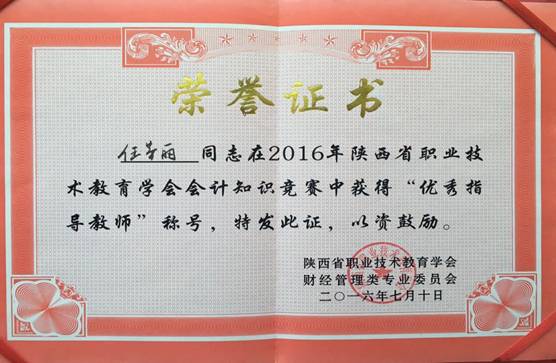 荣誉证书
任芳丽 同志在2016年陕西省职业技
术教育学会会计知识竞赛中获得“优秀指
导教师”称号，特发此证，以资鼓励。
陕西省职业技术教育学会
财经管理类专业委员会
二〇一六年七月十日